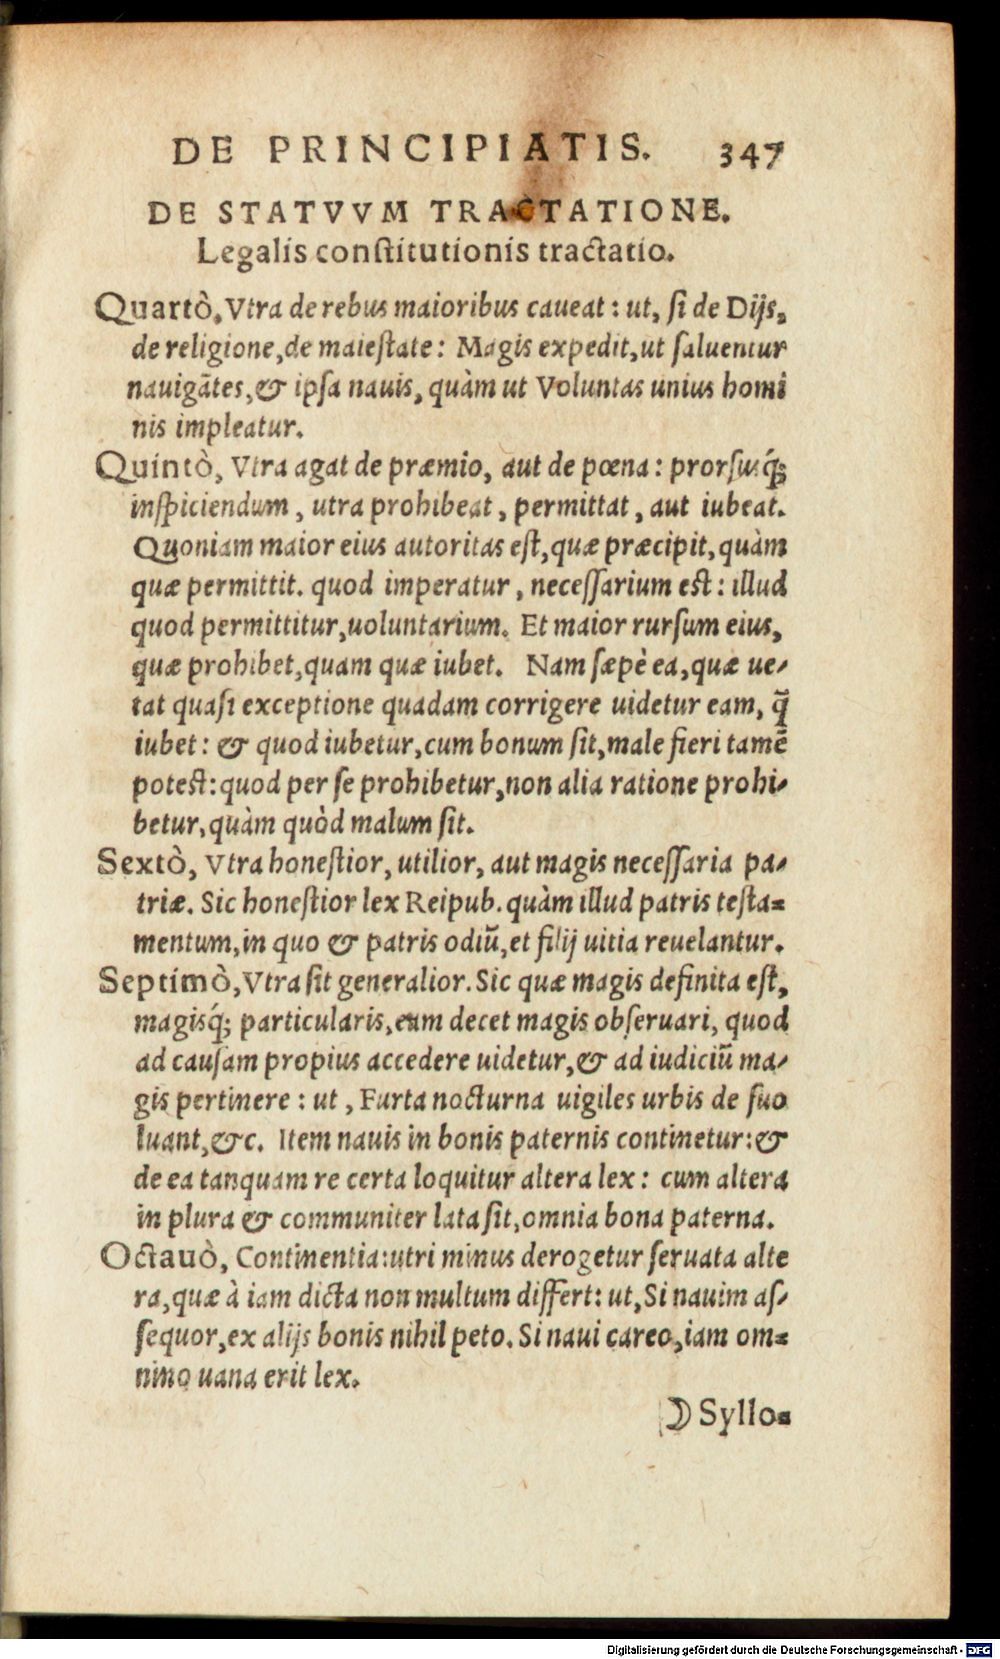 DE PRINCIPIATIS. 347
DE STATVVM TRACTATIONE.
Legalis constitutionis tractatio.
Quartò, Vtra de rebus maioribus caueat: ut, si de Dijs,
de religione, de maiestate: Magis expedit, ut saluentur
nauigãtes, & ipsa nauis, quàm ut Voluntas unius homi
nis impleatur.
Quintò, Vtra agat de præmio, aut de pœna: prorsusq́;
inspiciendum, utra prohibeat, permittat, aut iubeat.
Quoniam maior eius autoritas est, quæ præcipit, quàm
quæ permittit. quod imperatur, necessarium est: illud
quod permittitur, uoluntarium. Et maior rursum eius,
quæ prohibet, quam quæ iubet. Nam sæpè ea, quæ ue-
tat quasi exceptione quadam corrigere uidetur eam, q̃
iubet: & quod iubetur, cum bonum sit, male fieri tamẽ
potest: quod per se prohibetur, non alia ratione prohi-
betur, quàm quòd malum sit.
Sextò, Vtra honestior, utilior, aut magis necessaria pa-
triæ. Sic honestior lex Reipub. quàm illud patris testa-
mentum, in quo & patris odiũ, et filij uitia reuelantur.
Septimò, Vtra sit generalior. Sic quæ magis definita est,
magisq́; particularis, eam decet magis obseruari, quod
ad causam propius accedere uidetur, & ad iudiciũ ma-
gis pertinere: ut, Furta nocturna uigiles urbis de suo
luant, &c. Item nauis in bonis paternis continetur: &
de ea tanquam re certa loquitur altera lex: cum altera
in plura & communiter lata sit, omnia bona paterna.
Octauò, Continentia: utri minus derogetur seruata alte
ra, quæ à iam dicta non multum differt: ut, Si nauim as-
sequor, ex alijs bonis nihil peto. Si naui careo, iam om-
nino uana erit lex.
☽ Syllo-
Digitalisierung gefördert durch die Deutsche Forschungsgemeinschaft - DFG